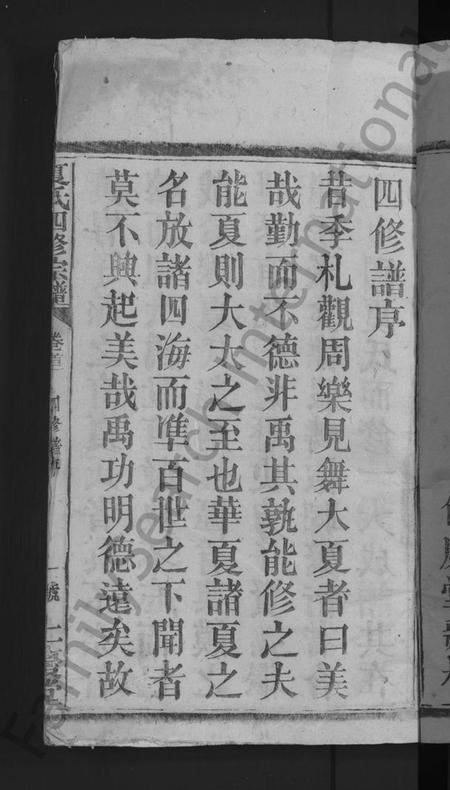 四修譜序
昔季札觀周樂見舞大夏者曰美
哉勤而不德非禹其孰能修之夫
能夏則大大之至也華夏諸夏之
名放諸四海而準百世之下聞者
莫不興起美哉禹功明德遠矣故
夏氏四修宗譜 卷首 四修譜序 一號
FamilySearch International